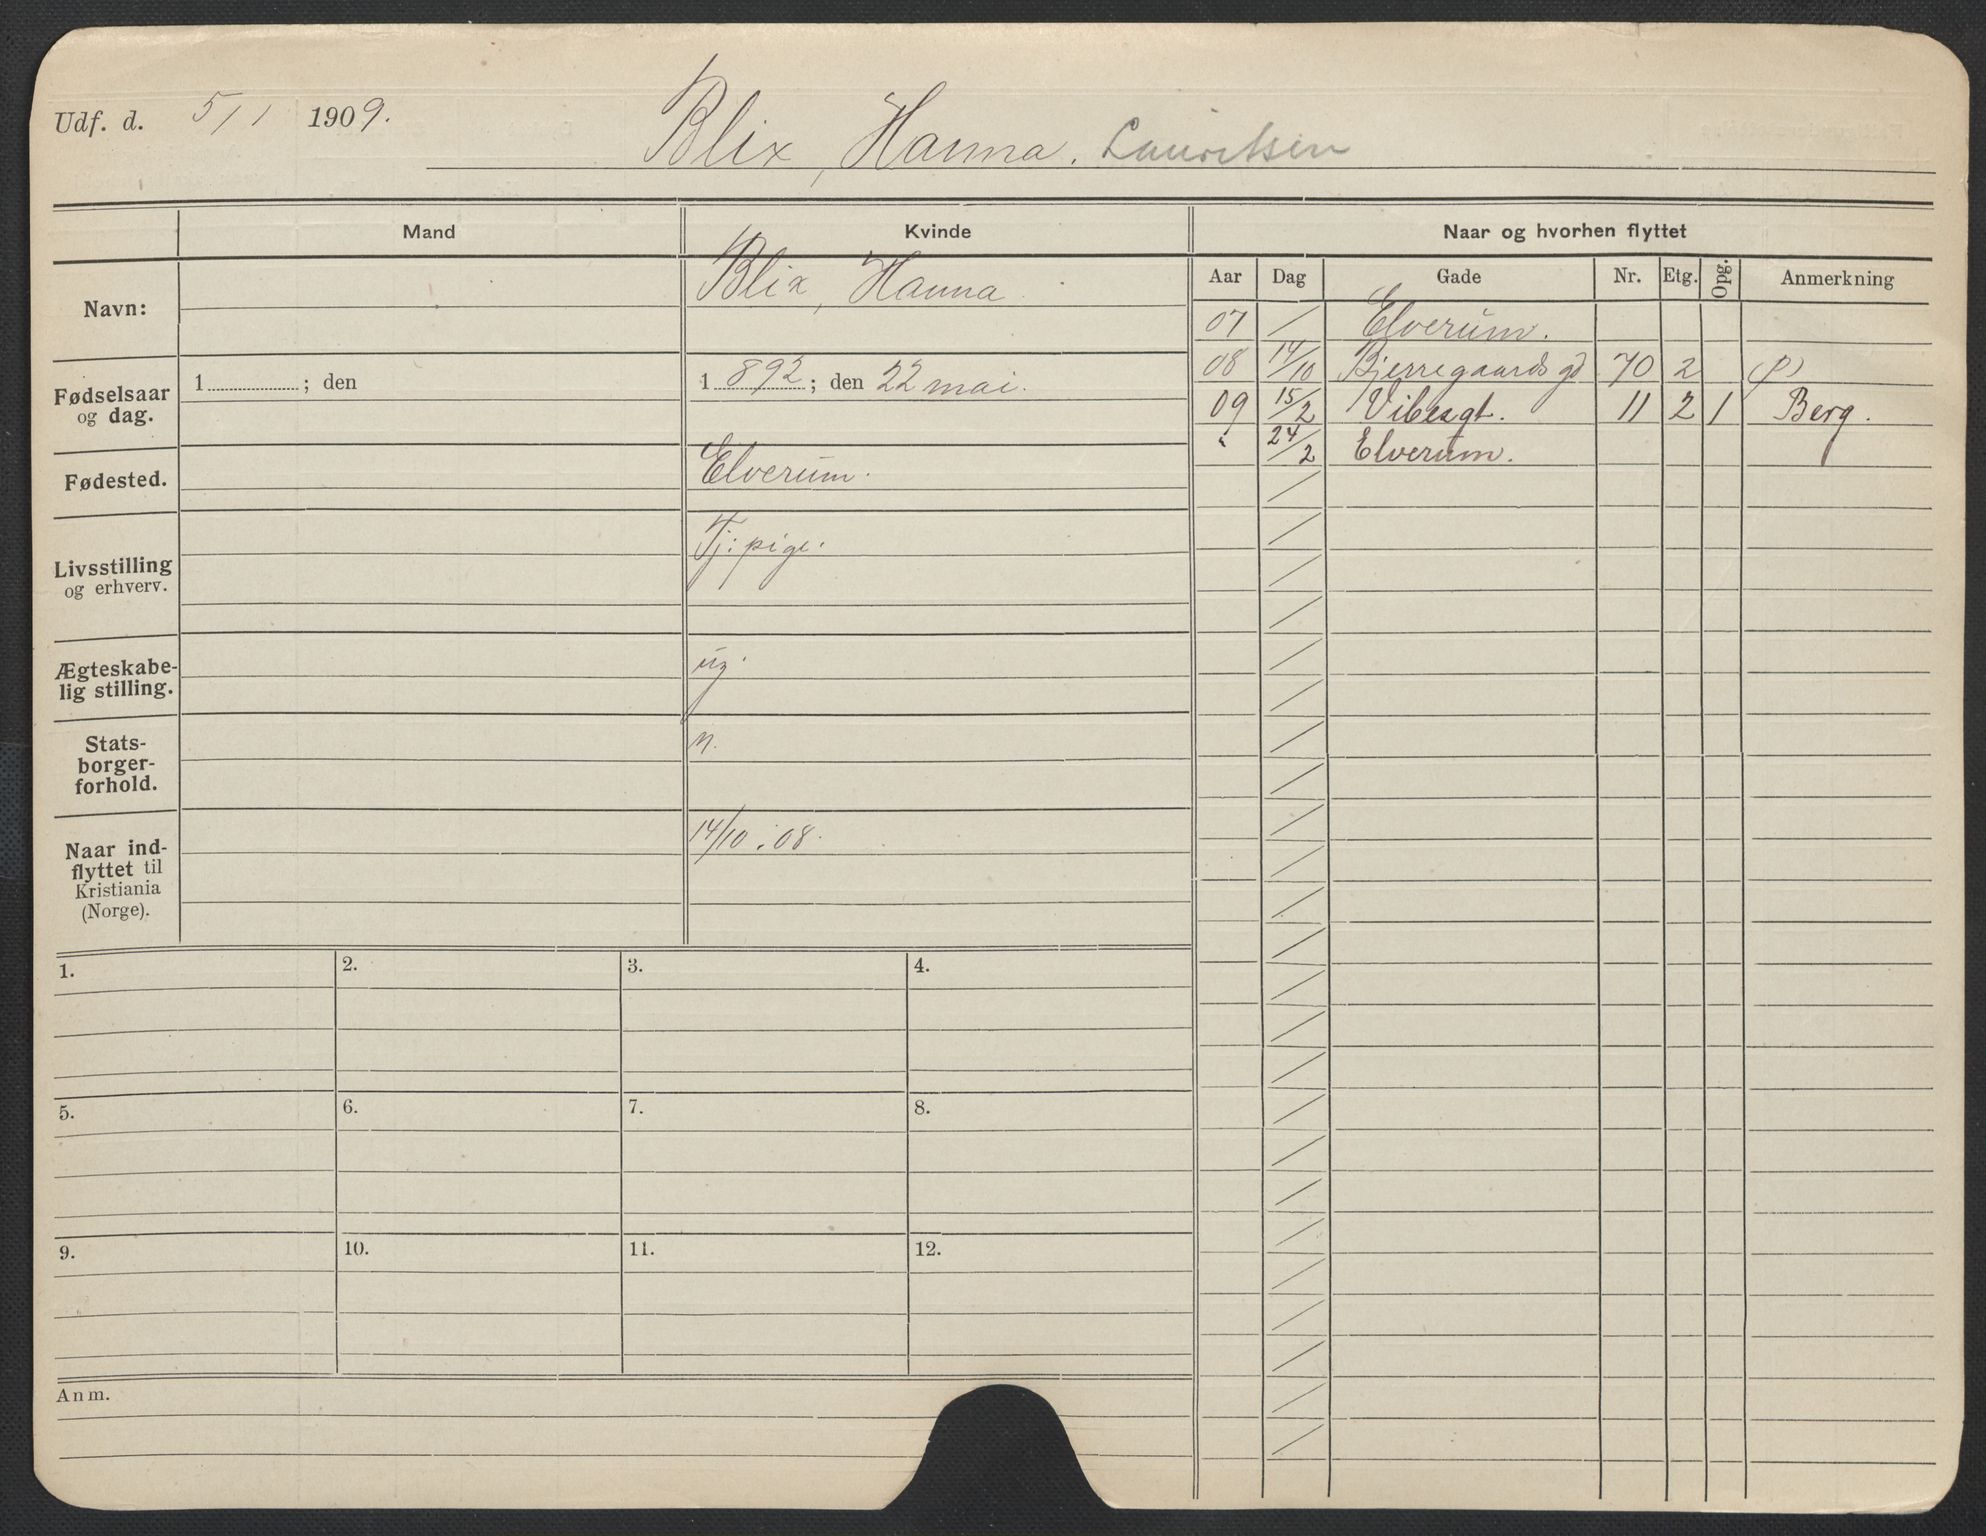 Udf. d. 5/1 1909.
Blix, Hanna. Lauritsen
Mand
Kvinde
Naar og hvorhen flyttet
Aar Dag Gade Nr. Etg. Opg. Anmerkning
Navn:
Blix, Hanna.
Fødselsaar
og dag.
1 ; den
1892; den 22 mai.
Fødested.
Elverum.
Livsstilling
og erhverv.
Tj: pige.
Ægteskabe-
lig stilling.
ug.
Stats-
borger-
forhold.
n.
Naar ind-
flyttet til
Kristiania
(Norge).
14/10. 08.
07 / Elverum.
08 14/10 Bjerregaards gd 70 2
09 15/2 Vibesgt. 11 2 1 Berg.
" 24/2 Elverum.
1. 2. 3. 4.
5. 6. 7. 8.
9. 10. 11. 12.
Anm.